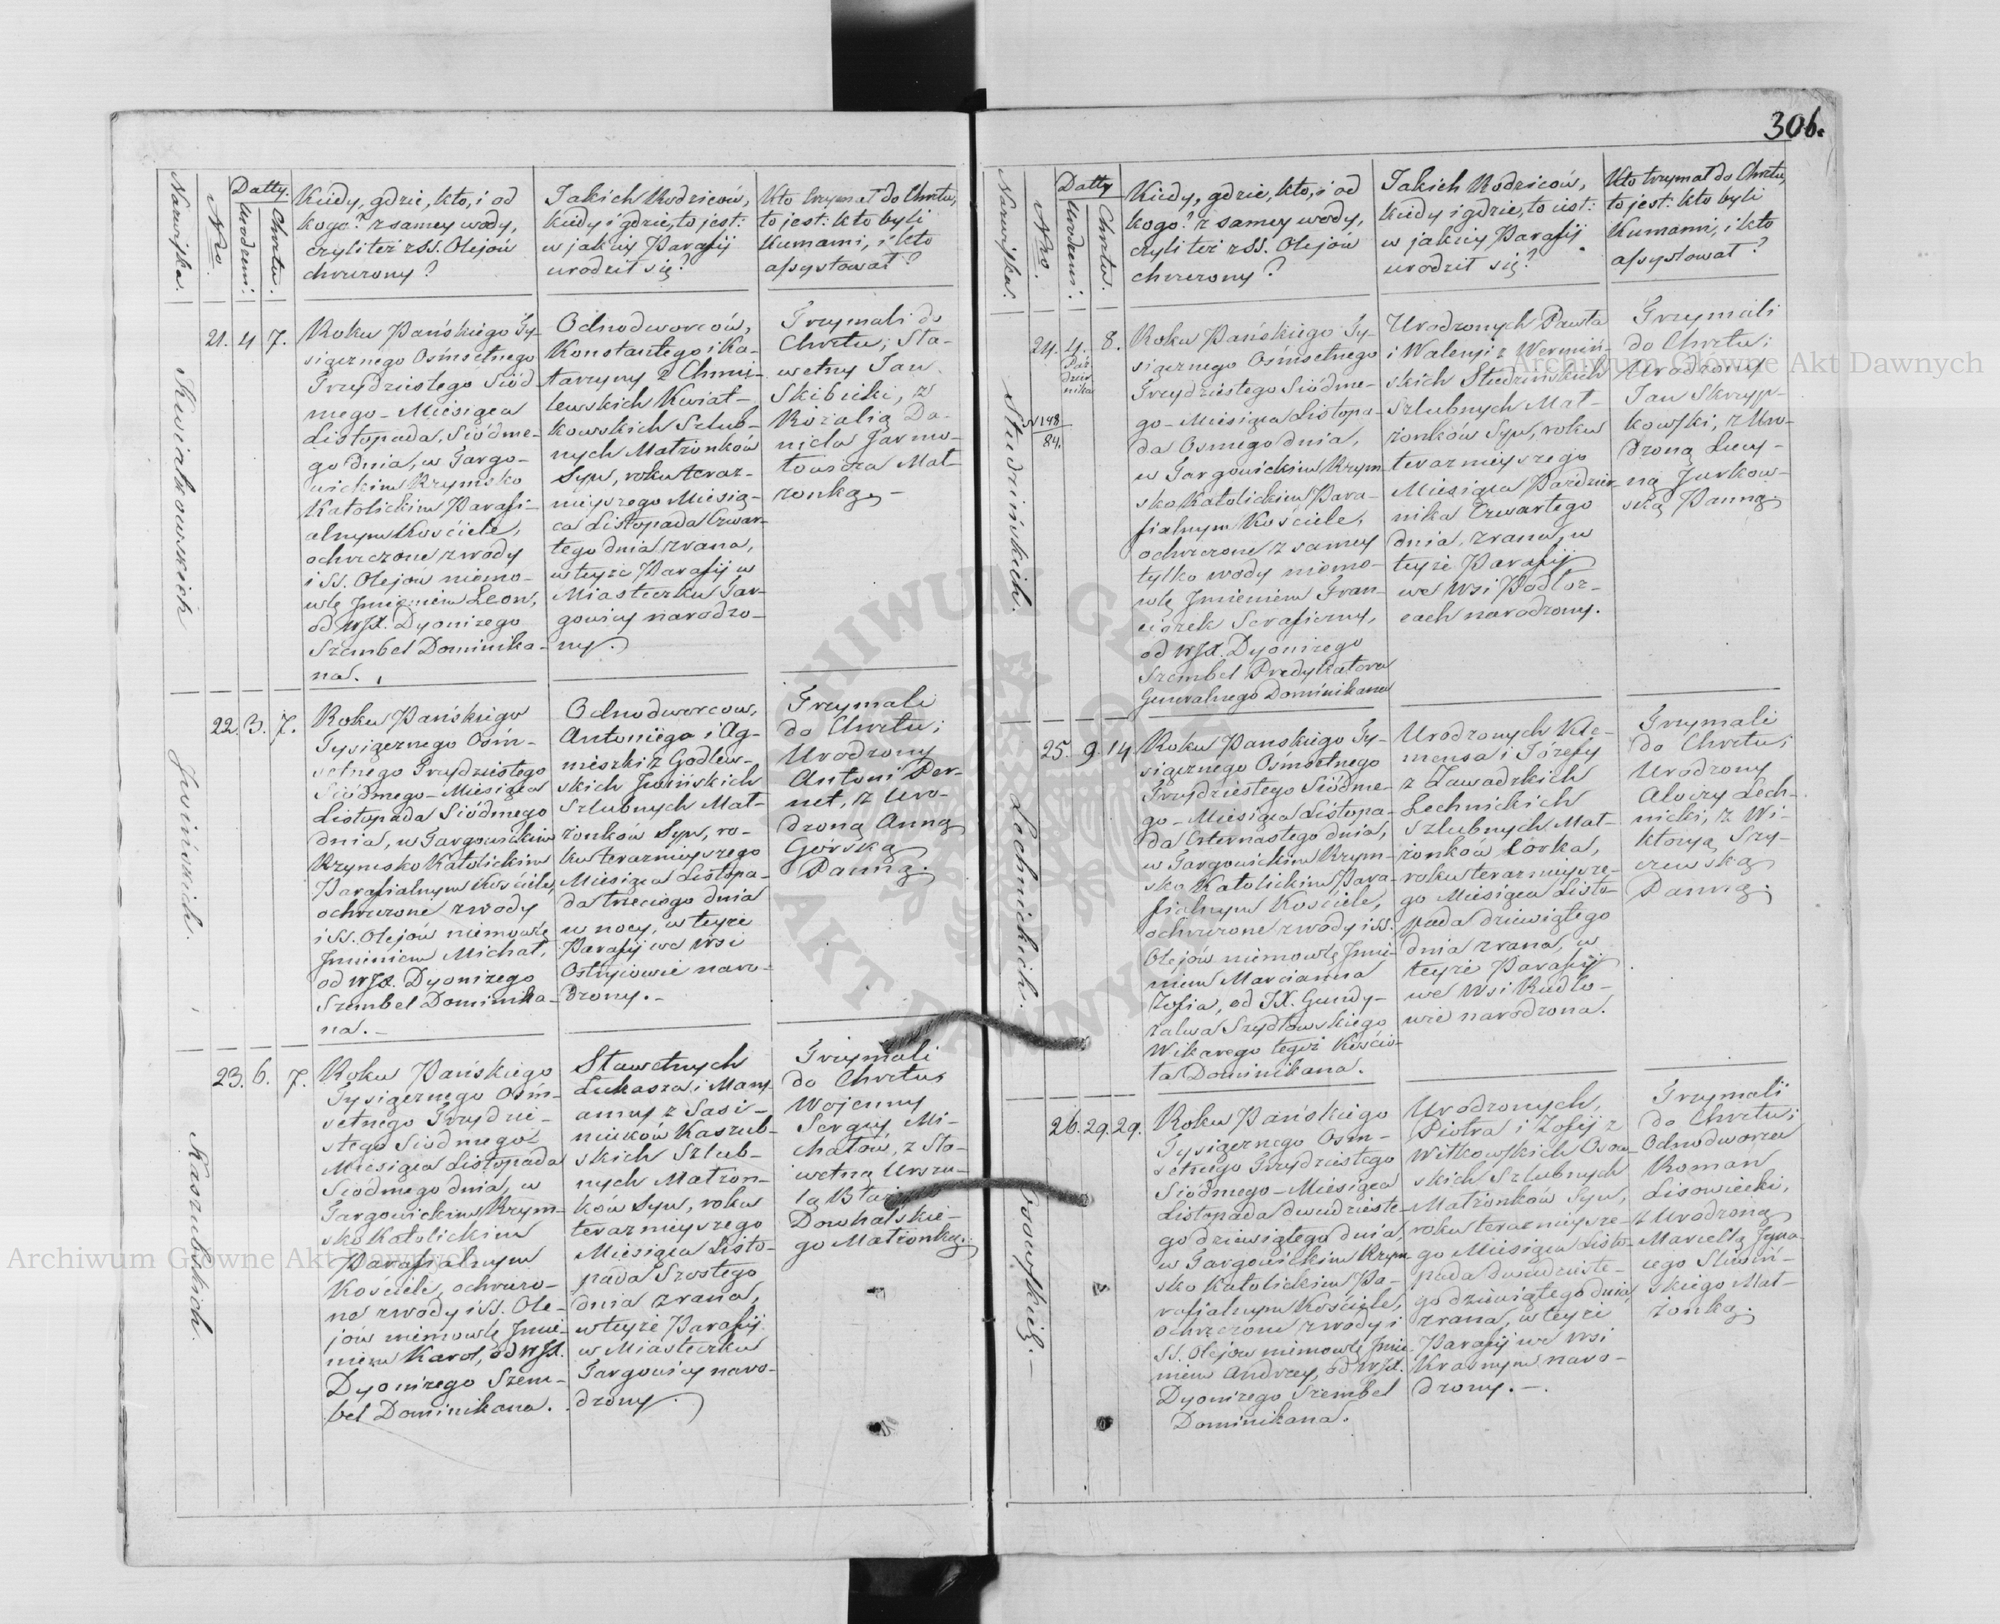 306.
Nazwiska.
Nro.
Datty.
Urodzeni:
Chrztu.
Kiedy, gdzie, kto, i od
kogo? z samey wody,
czyli też z SS. Olejów
chrzczony?
Jakich Rodziców,
kiedy i gdzie, to jest:
w jakiéj Parafij
urodził się?
Kto trzymał do Chrztu,
to jest: kto byli
Kumami, i kto
assystował?
Kwiatkowskich
21. 4 7.
Roku Pańskiego Ty-
siącznego Ośmsetnego
Trzydziestego Siód-
mego - Miesiąca
Listopada, Siódme-
go dnia, w Targo-
wickim Rzymsko
Katolickim Parafi-
alnym Kościele,
ochrzczone z wody
i SS. Olejów niemo-
wlę Jmieniem Leon,
od WJX. Dyonizego
Szembel Dominika-
na.
Odnodworców,
Konstantego i Ka-
tarzyny z Chmie-
lewskich Kwiat-
kowskich Szlub-
nych Małżonków
Syn, roku teraz-
niejszego Miesią-
ca Listopada Czwar-
tego dnia zrana,
w teyże Parafij w
Miasteczku Tar-
gowicy narodzo-
ny.
Trzymali do
Chrztu; Sła-
wetny Jan
Skibicki, z
Rozalią Da-
niela Jarmo-
łowicza Mał-
żonką. -
Jewińskich.
22. 3. 7.
Roku Pańskiego
Tysiącznego Ośm-
setnego Trzydziestego
Siódmego - Miesiąca
Listopada Siódmego
dnia, w Targowickim
Rzymsko Katolickim
Parafialnym Kościele,
ochrzczone z wody
i SS. Olejów niemowlę
Jmieniem Michał,
od WJX. Dyonizego
Szembel Dominika-
na. -
Odnodworcow,
Antoniego i Ag-
nieszki z Godlew-
skich Jewińskich
Szlubnych Mał-
żonków Syn, ro-
ku terazniejszego
Miesiąca Listopa-
da trzeciego dnia
w nocy, w teyże
Parafij we Wsi
Ostrijowie naro-
dzony. -
Trzymali
do Chrztu;
Urodzony
Antoni Per-
net, z Uro-
dzoną Anną
Gorską
Panną.
Kaszubskich.
23. 6. 7.
Roku Pańskiego
Tysiącznego Ośm-
setnego Trzydzie-
stego Siódmego
Miesiąca Listopada
Siódmego dnia, w
Targowickim Rzym-
sko Katolickim
Parafialnym
Kościele, ochrzczo-
ne z wody i SS. Ole-
jów niemowlę Jmie-
niem Karol, od WJX.
Dyonizego Szem-
bel Dominikana.
Sławetnych
Lukasza i Mary-
anny z Sasi-
nuków Kaszub-
skich Szlub-
nych Małżon-
ków Syn, roku
terazniejszego
Miesiąca Listo-
pada Szostego
dnia zrana,
w teyże Parafij
w Miasteczku
Targowicy naro-
dzony.
Trzymali
do Chrztu;
Wojenny
Sergiey Mi-
chałów, z Sła-
wetną Urszu-
lą
Downalskie-
go Małżonką.
Nazwiska.
Nro.
Datty
Urodzeni:
Chrztu.
Kiedy, gdzie, kto, i od
kogo? z samey wody,
czyli też z SS. Olejów
chrzczony?
Jakich Rodziców,
kiedy i gdzie, to iest:
w jakiéj Parafij
urodził się?
Kto trzymał do Chrztu,
to jest: kto byli
Kumami, i kto
assystował?
Studzińskich.
24. 4. 8.
Paź
dzier
nika
N 148
84.
Roku Pańskiego Ty-
siącznego Ośmsetnego
Trzydziestego Siódme-
go - Miesiąca Listopa-
da Osmego dnia,
w Targowickim Rzym
sko Katolickim Para-
fialnym Kościele,
ochrzczone z samey
tylko wody niemo-
wlę Jmieniem Fran-
ciszek Seraficzny,
od WJX. Dyonizego
Szembel Predykatora
Generalnego Dominikana
Urodzonych Pawła
i Waleryi z Wermiń-
skich Studzińskich
Szlubnych Mał-
żonków Syn, roku
terazniejszego
Miesiąca Paździer-
nika Czwartego
dnia, zrana, w
teyże Parafij
we Wsi Podłoz-
cach narodzony.
Trzymali
do Chrztu;
Urodzony
Jan Skrzyp-
kowski, z Uro-
dzoną Lucy-
ną Jurkow-
ską Panną
Lechnickich.
25. 9. 14
Roku Pańskiego Ty-
siącznego Ośmsetnego
Trzydziestego Siódme-
go - Miesiąca Listopa-
da Czternastego dnia,
w Targowickim Rzym-
sko Katolickim Para-
fialnym Kościele,
ochrzczone z wody i SS.
Olejów niemowlę Jmie-
niem Marcianna
Zofia, od JX. Gundy-
zalwa Szydłowskiego
Wikarego tegoż Kościo-
ła Dominikana.
Urodzonych Kle-
mensa i Józefy
z Zawadzkich
Lechnickich
Szlubnych Mał-
żonków Córka,
roku terazniejsze-
go Miesiąca Listo-
pada dziewiątego
dnia zrana, w
teyże Parafij
we Wsi Rudlo-
wie narodzona.
Trzymali
do Chrztu;
Urodzony
Aloizy Lech-
nicki, z Wi-
ktorją Szy-
czewską
Panną.
Osowskich. -
26. 29. 29.
Roku Pańskiego
Tysiącznego Osm-
setnego Trzydziestego
Siódmego - Miesiąca
Listopada dwudzieste-
go dziewiątego dnia,
w Targowickim Rzym
sko Katolickim Pa-
rafialnym Kościele,
ochrzczone z wody i
SS. Olejow niemowlę Jmie-
niem Andrzey, od WJX.
Dyonizego Szembel
Dominikana.
Urodzonych,
Piotra i Zofij z
Witkowskich Osow-
skich Szlubnych
Małżonków Syn,
roku terazniejsze-
go Miesiąca Listo-
pada dwudzieste-
go dziewiątego dnia,
zrana, w teyże
Parafij we Wsi
Krasnym naro-
dzony. -
Trzymali
do Chrztu;
Odnodworzec
Roman
Lisowiecki,
z Urodzoną
Marcellą Jgna-
cego Sliwiń-
skiego Mał-
żonką.
Archiwum Główne Akt Dawnych
Archiwum Główne Akt Dawnych